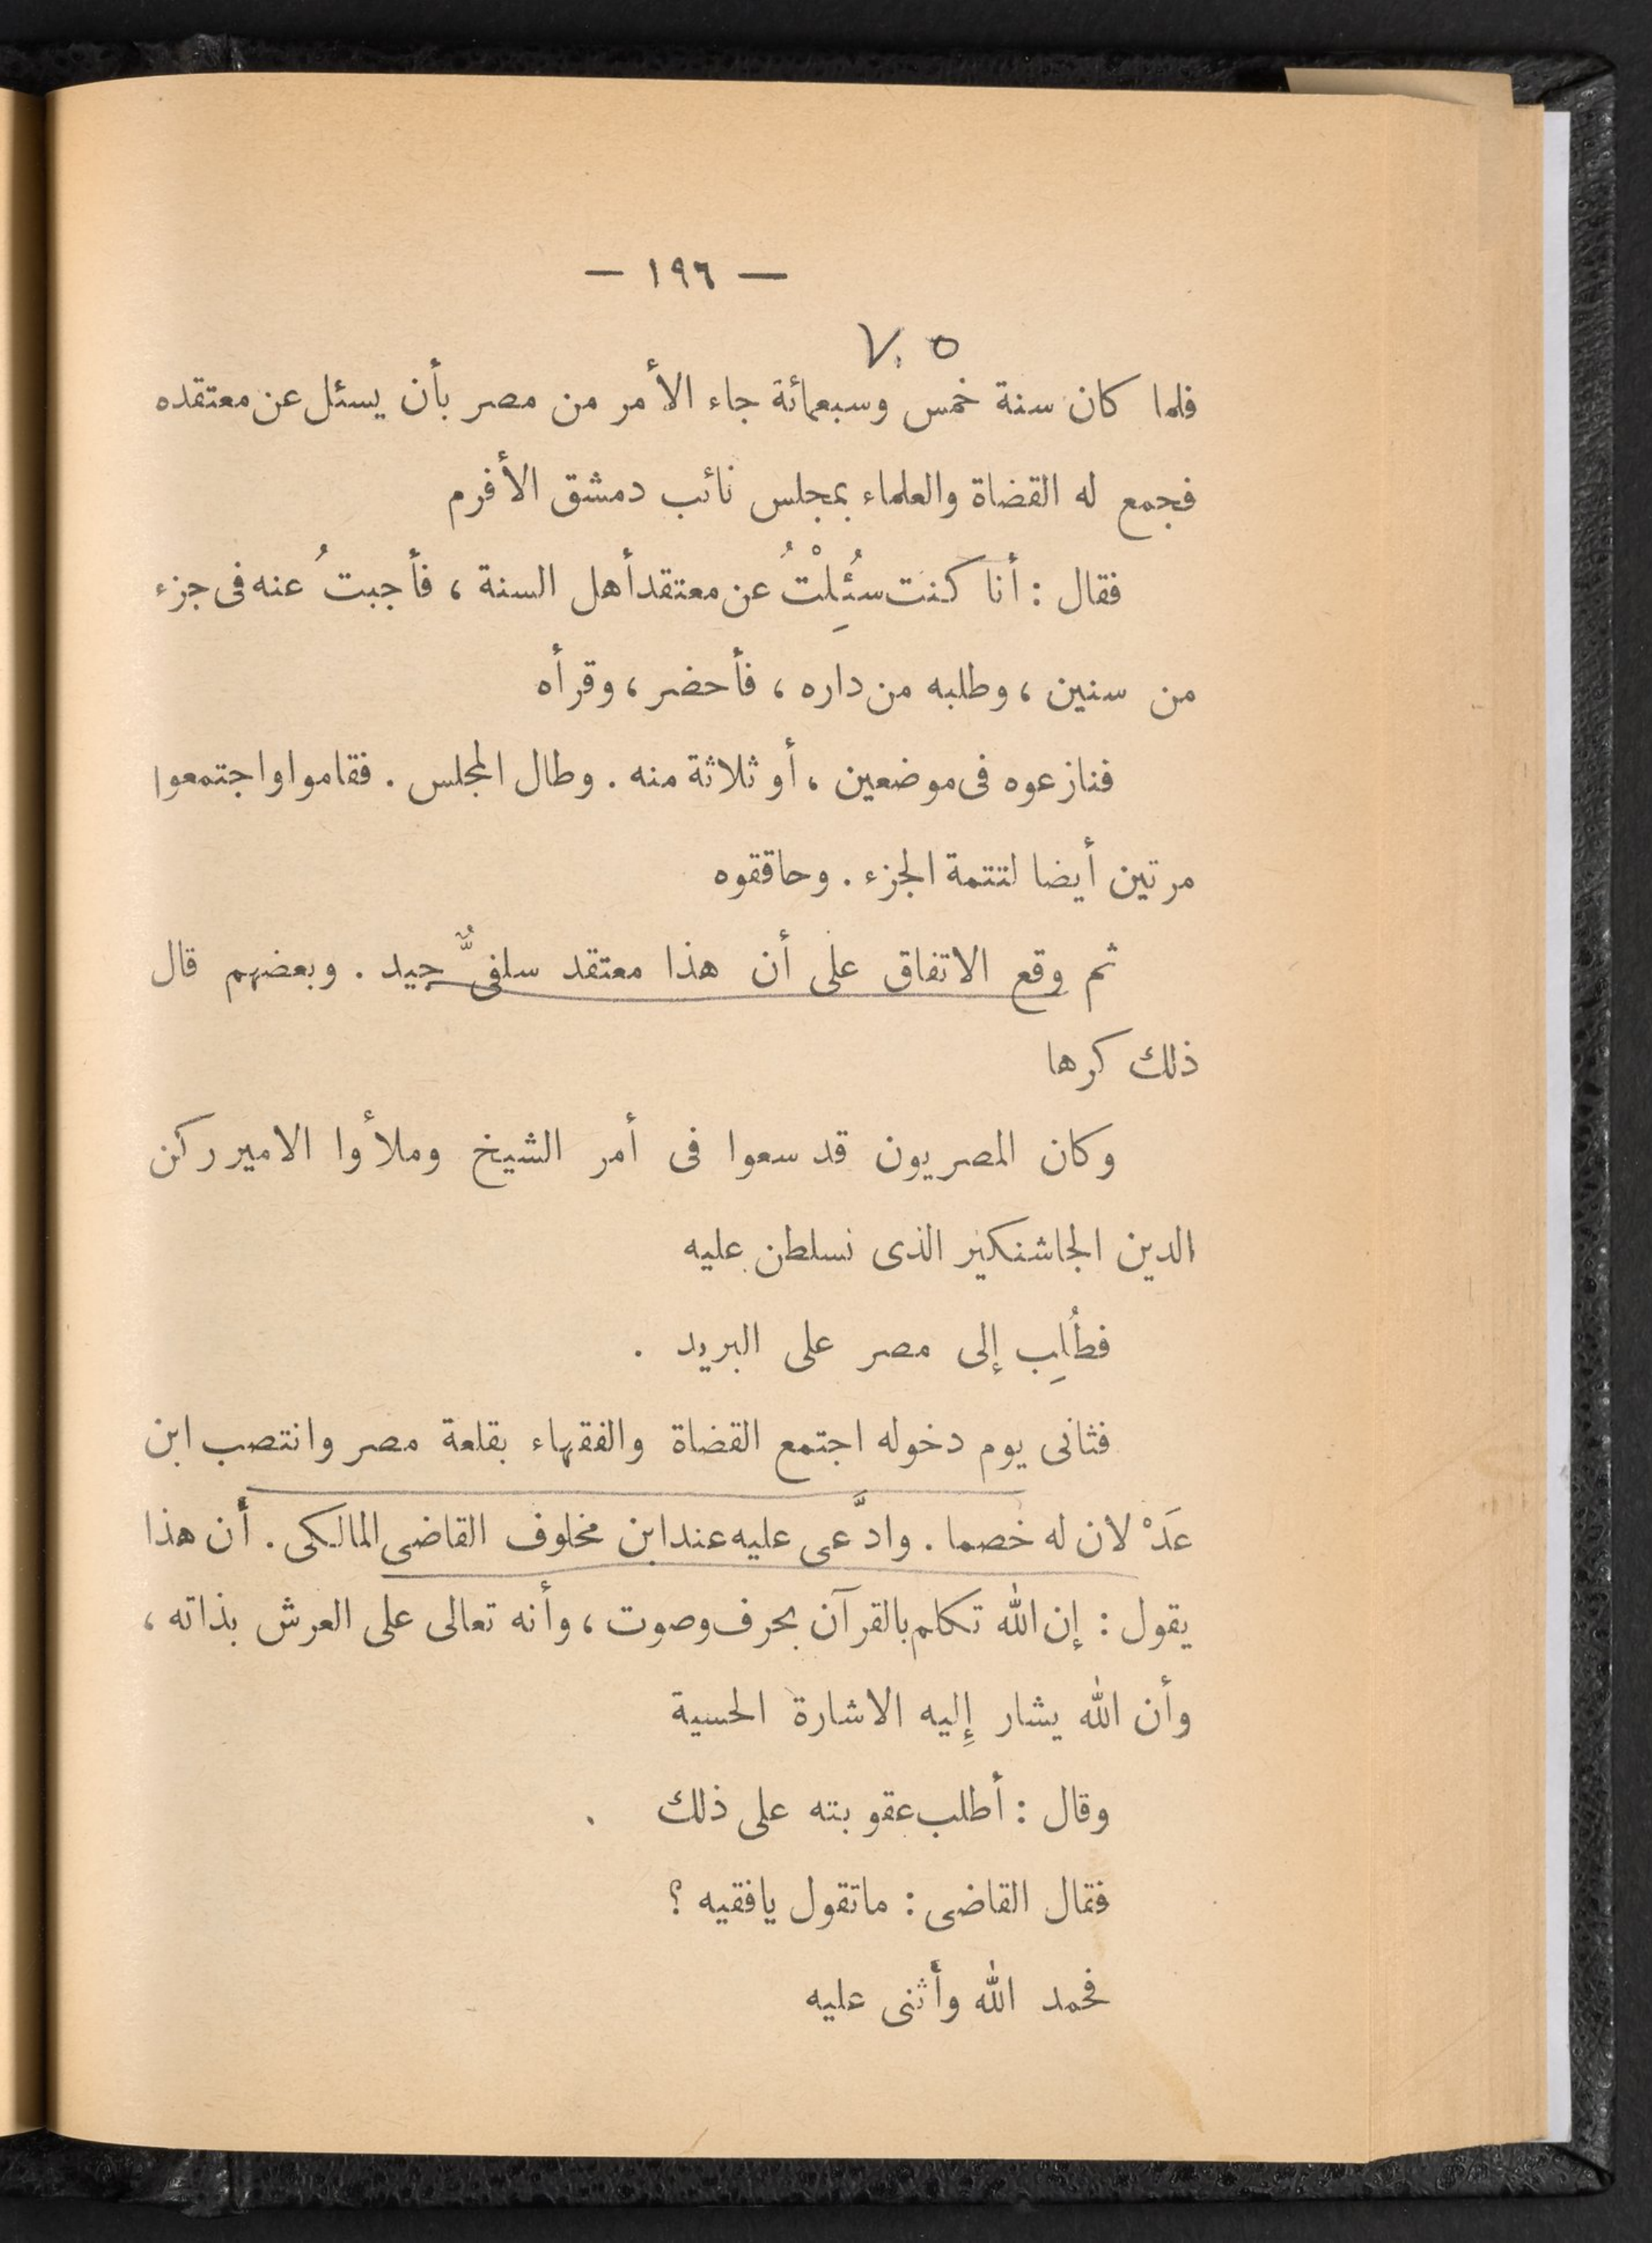 — ١٩٦ —
٧٠٥
فلما كان سنة خمس وسبعمائة جاء الأمر من مصر بأن يسئل عن معتقده
فجمع له القضاة والعلماء بمجلس نائب دمشق الأفرم
فقال : أنا كنت سُئِلْتُ عن معتقد أهل السنة ، فأجبتُ عنه فى جزء
من سنين ، وطلبه من داره ، فأحضر ، وقرأه
فنازعوه فى موضعين ، أو ثلاثة منه . وطال المجلس . فقاموا واجتمعوا
مرتين أيضا لتتمة الجزء . وحاققوه
ثم وقع الاتفاق على أن هذا معتقد سلفىٌّ جيد . وبعضهم قال
ذلك كرها
وكان المصريون قد سعوا فى أمر الشيخ وملأوا الامير ركن
الدين الجاشنكير الذى تسلطن عليه
فطُلِب إلى مصر على البريد .
فثانى يوم دخوله اجتمع القضاة والفقهاء بقلعة مصر وانتصب ابن
عَدْ لان له خصما . وادَّعى عليه عند ابن مخلوف القاضى المالكى . أن هذا
يقول : إن الله تكلم بالقرآن بحرف وصوت ، وأنه تعالى على العرش بذاته ،
وأن الله يشار إِليه الاشارة الحسية
وقال : أطلب عقوبته على ذلك .
فقال القاضى : ماتقول يافقيه ؟
فحمد الله وأثنى عليه